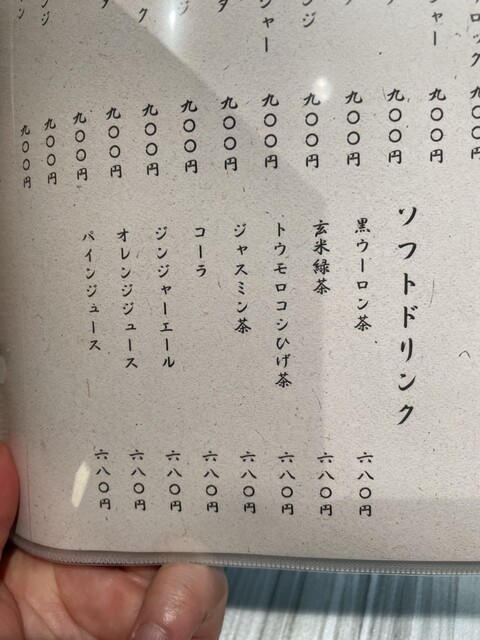 ロック 九〇〇
ャー 九〇〇円
九〇〇円
九〇〇円
ンジ 九〇〇円
ジャー 九〇〇円
タ 九〇〇円
ジ 九〇〇円
ク 九〇〇円
タ 九〇〇円
九〇〇円
ジ 九〇〇円
ン 九〇〇円
ソフトドリンク
黒ウーロン茶 六八〇円
玄米緑茶 六八〇円
トウモロコシひげ茶 六八〇円
ジャスミン茶 六八〇円
コーラ 六八〇円
ジンジャーエール 六八〇円
オレンジジュース 六八〇円
パインジュース 六八〇円